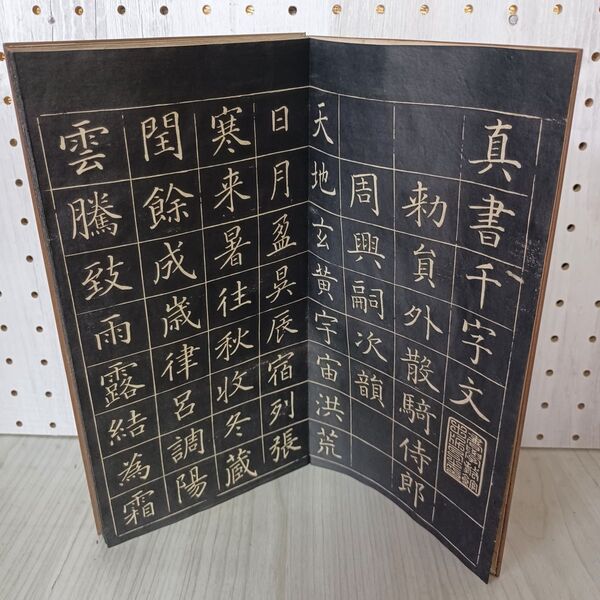 真書千字文
勅員外散騎侍郎
周興嗣次韻
天地玄黄宇宙洪荒
日月盈昃辰宿列張
寒来暑往秋收冬蔵
閏餘成歳律呂調陽
雲騰致雨露結為霜